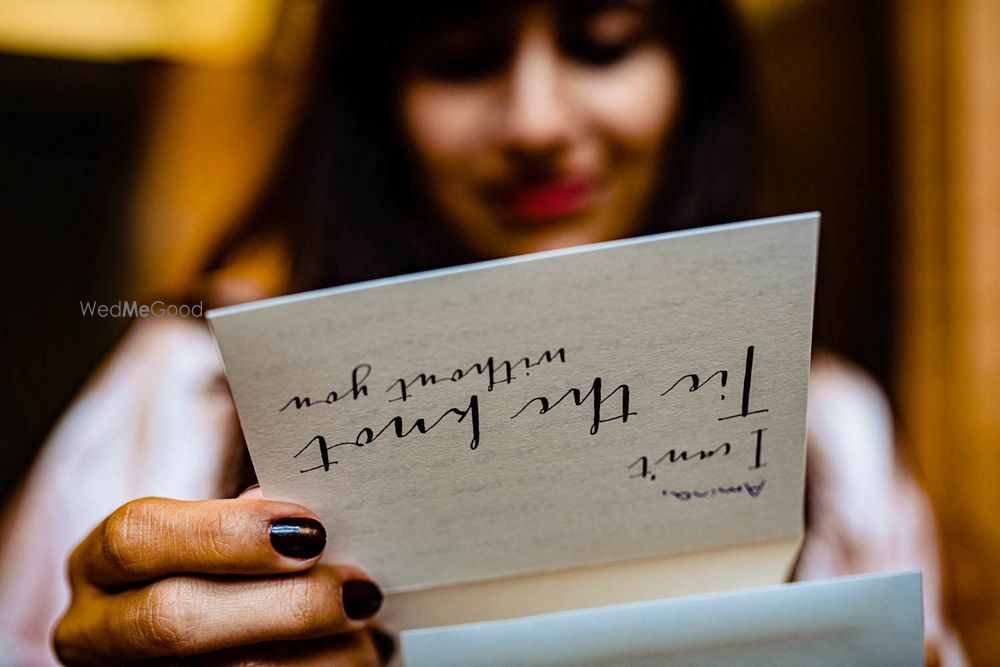 WedMeGood
Amina,
I can't
Tie the knot
without you